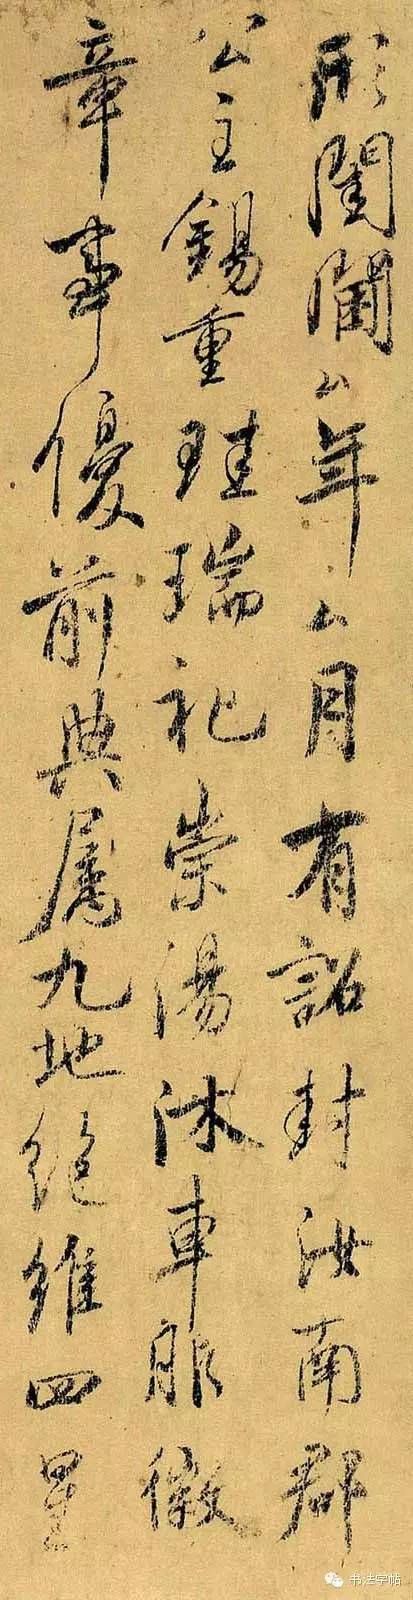 形閨閫厶年厶月有詔封汝南郡
公主錫重珪瑞礼崇湯沐車服徽
章事優前典属九地絕維四星
书法字帖